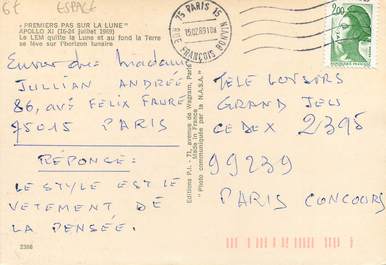 6€ ESPACE
« PREMIERS PAS SUR LA LUNE »
APOLLO XI (16-24 juillet 1969)
Le LEM quitte la Lune et au fond la Terre
se lève sur l'horizon lunaire
Envoi de Madame
JULLIAN ANDRÉE
86, avE FELIX FAURE
75015 PARIS
RÉPONSE:
LE STYLE EST LE
VETEMENT DE LA
PENSÉE.
2386
Editions P.I. - 71, avenue de Wagram, Paris
Made in France
"Photo communiquée par la N.A.S.A."
75 PARIS 15
RUE FRANÇOIS BONVIN
2,00
TELE LOISIRS
GRAND JEU
CEDEX 2395
99239
PARIS CONCOURS